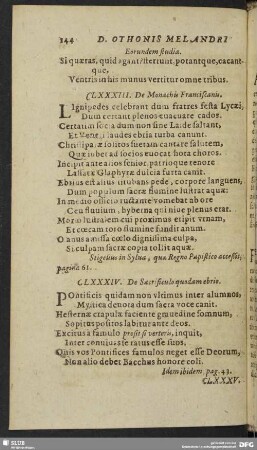 144 D. OTHONIS MELANDRI
Eorundem studia.
Si quæras, quid agant? stertunt, potantque, cacant-
que,
Ventris in his munus vertitur omne tribus.
CLXXXIII. De Monachis Franciscanis.
Lignipedes celebrant dum fratres festa Lycæi,
Dum certant plenos evacuare cados.
Certatim socia dum non sine Laide saltant,
Et turba canunt.
solitos suetam cantare salutem,
Quæ inberbad socios vocat hora choros.
Incipit ante alios senior, patrioque tenore
Lassæ Glaphyræ dulcia furta canit.
Ebrius est alius titubans pede, corpore languens,
Dum populum sacræ flumine lustrat aquæ:
In medio officio ructante vomebat ab ore
Ceu fluvium, hyberna qui nive plenus erat.
Morio lustralem cui proximus etipit vrnam,
Et cœcam toro flumine fundit anum.
O anus amissa cœlo dignissima culpa,
Si culpam sacræ copia tollit aquæ.
Stigelius in Sylva, qua Regno Papistico accessit,
pagina 61.
CLXXXIV. De Sacrificulo quodam ebrio.
Pontificis quidam nox vltimus inter alumnos,
Mystica denota dum sacra voce canit.
Hesternæ crapulæ faciente gravedine somnum,
Sopitus positos labitur ante deos.
Excitus a famulo prosit si verteris, inquit,
Inter conviuas sie ratus esse suos.
Quis vos Pontifices famulos neget esse Deorum,
Non alio debet Bacchus honore coli.
Idem ibidem. pag. 43.
CLXXXV.
SLUB